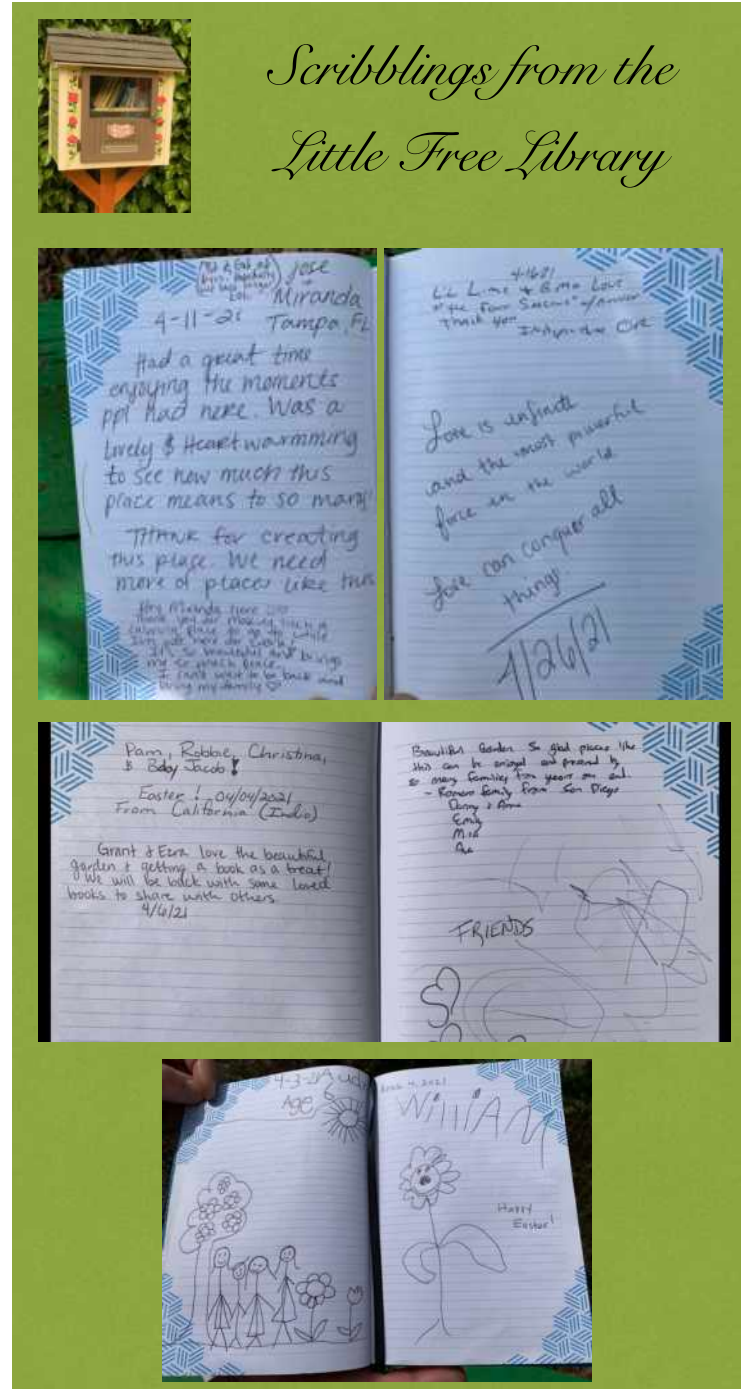 Scribblings from the
Little Free Library
Jose
+
Miranda
4-11-21 Tampa, FL
Had a great time
enjoying the moments
ppl had here. Was a
Lovely & Heartwarmming
to see how much this
place means to so many!
THANK for creating
this place. We need
more of places like this
Hey Miranda here
Thank you for making such a
place to go to while
out here for work.
It's so beautiful and brings
me so much peace.
I can't wait to be back and
bring my family ♡
& Love
Thank you
Love is infinite
and the most powerful
force in the world
Love can conquer all
things.
4/26/21
Pam, Robbie, Christina,
& Baby Jacob!
Easter! 04/04/2021
From California (Indio)
Grant & Ezra love the beautiful
garden & getting a book as a treat!
We will be back with some loved
books to share with others.
4/6/21
Beautiful Garden. So glad places like
this can be enjoyed and by
so many families for years on end.
- Romero family from San Diego
Danny & Anna
Emily
Mia
FRIENDS
4-3-21
Age
4, 2021
WilliAM
Happy
Easter!